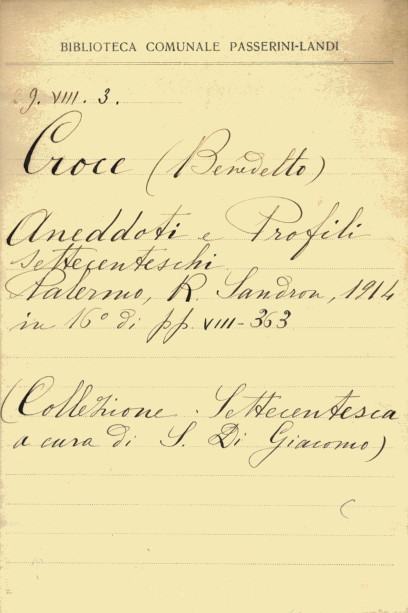 BIBLIOTECA COMUNALE PASSERINI-LANDI
g. VIII. 3.
Croce (Benedetto)
Aneddoti e Profili
settecenteschi
Palermo, R. Sandron, 1914
in 16° di pp. VIII-363
(Collezione Settecentesca
a cura di S. Di Giacomo)